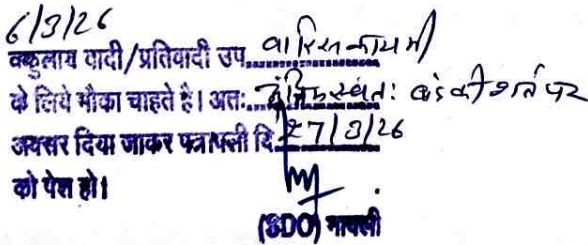 6/3/26
वकुलाय वादी/प्रतिवादी उप. वारिसनामामी
के लिये मौका चाहते है। अतः अंतिम स्वतः की शर्त पर
अवसर दिया जाकर पत्रावली दि. 27/3/26
को पेश हो।
(SDO) मावली